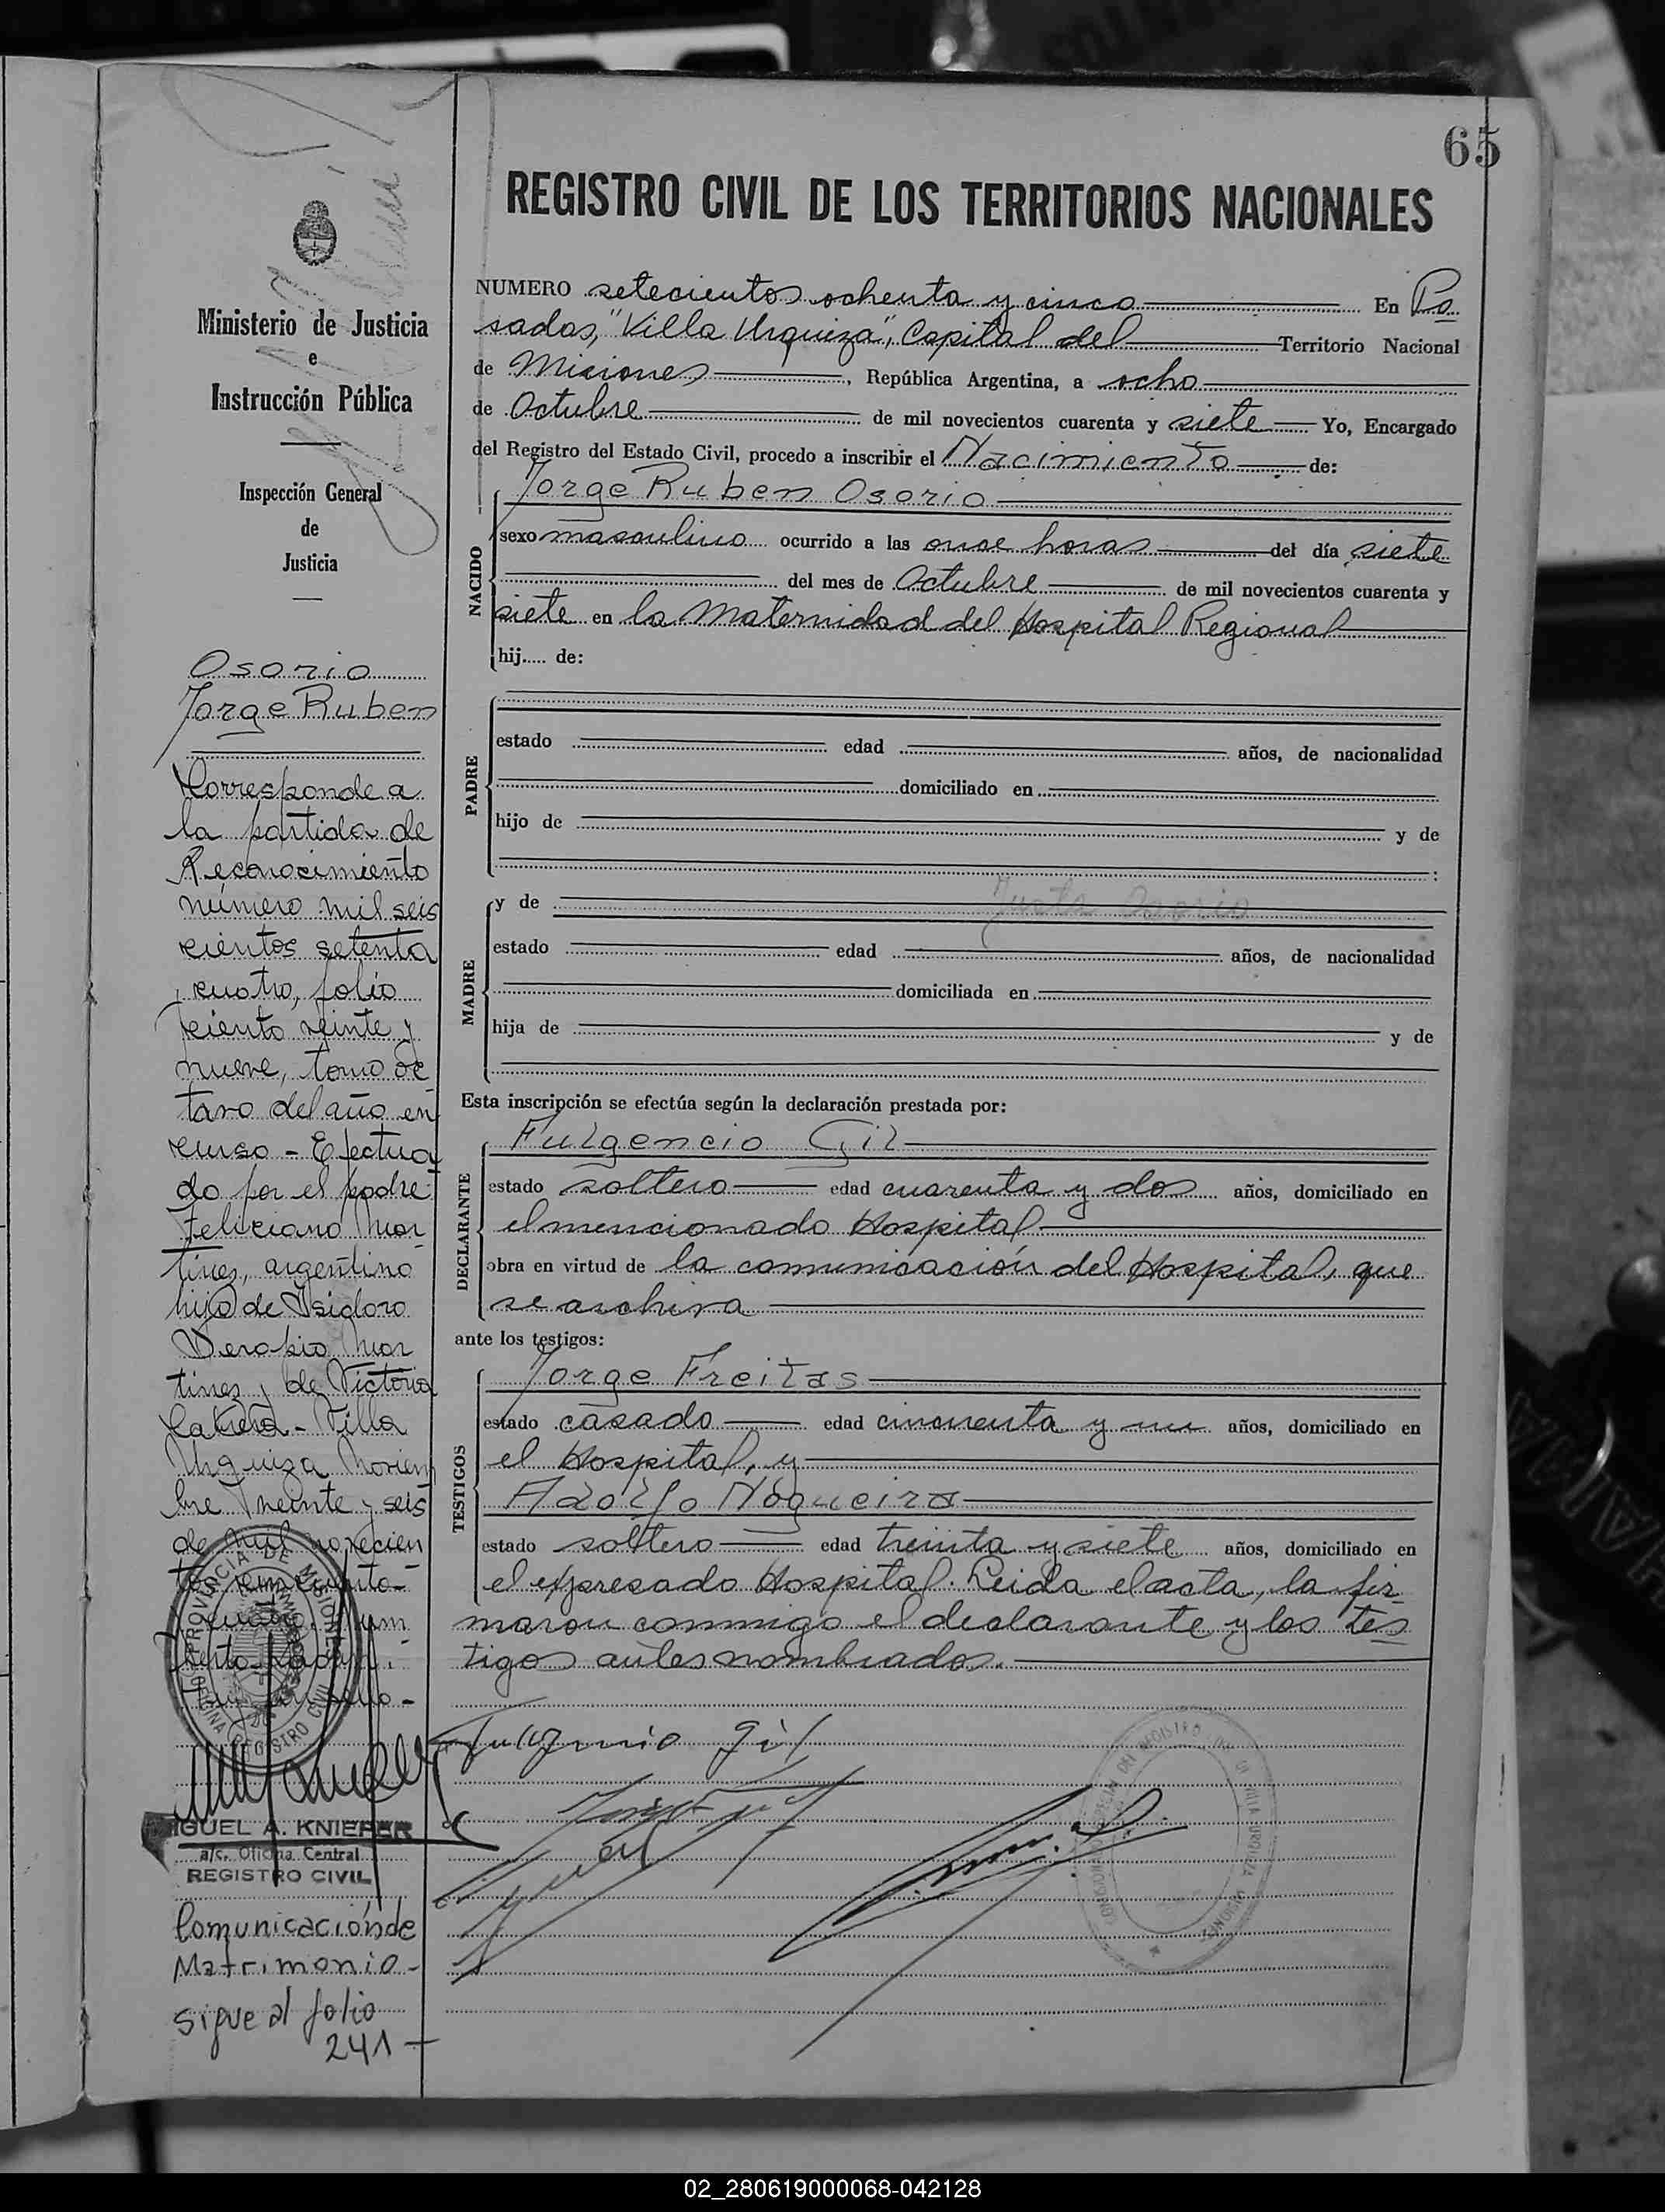 65
REGISTRO CIVIL DE LOS TERRITORIOS NACIONALES
Ministerio de Justicia
e
Instrucción Pública
Inspección General
de
Justicia
Osorio
Jorge Ruben
Corresponde a
la partida de
Reconocimiento
número mil seis
cientos setenta
cuatro, folio
ciento veinte y
nueve, tomo oc
tavo del año en
curso - Efectua
do por el padre
Feliciano Mar
tines, argentino
hijo de Isidoro
Mar
tines y de Victoria
Cabrera - Villa
Urquiza Noviem
bre veinte y seis
de mil novecien
tos
PROVINCIA DE MISIONES
OFICINA REGISTRO CIVIL
MIGUEL A. KNIEFER
a/c. Oficina Central
REGISTRO CIVIL
Comunicación de
Matrimonio -
sigue al folio
241 -
NUMERO setecientos ochenta y cinco En Po
sadas, "Villa Urquiza", Capital del Territorio Nacional
de Misiones, República Argentina, a ocho
de Octubre de mil novecientos cuarenta y siete Yo, Encargado
del Registro del Estado Civil, procedo a inscribir el Nacimiento de:
Jorge Ruben Osorio
NACIDO
sexo masculino ocurrido a las once horas del día siete
del mes de Octubre de mil novecientos cuarenta y
siete en la Maternidad del Hospital Regional
hij..... de:
PADRE
estado edad años, de nacionalidad
domiciliado en
hijo de y de
:
MADRE
y de Justa Osorio
estado edad años, de nacionalidad
domiciliada en
hija de y de
Esta inscripción se efectúa según la declaración prestada por:
DECLARANTE
Fulgencio Gil
estado soltero edad cuarenta y dos años, domiciliado en
el mencionado Hospital
obra en virtud de la comunicación del Hospital, que
se archiva
ante los testigos:
TESTIGOS
Jorge Freitas
estado casado edad cincuenta y un años, domiciliado en
el Hospital, y
Adolfo Nogueira
estado soltero edad treinta y siete años, domiciliado en
el expresado Hospital. Leida el acta, la fir
maron conmigo el declarante y los tes
tigos antes nombrados.
Fulgencio Gil
02_280619000068-042128